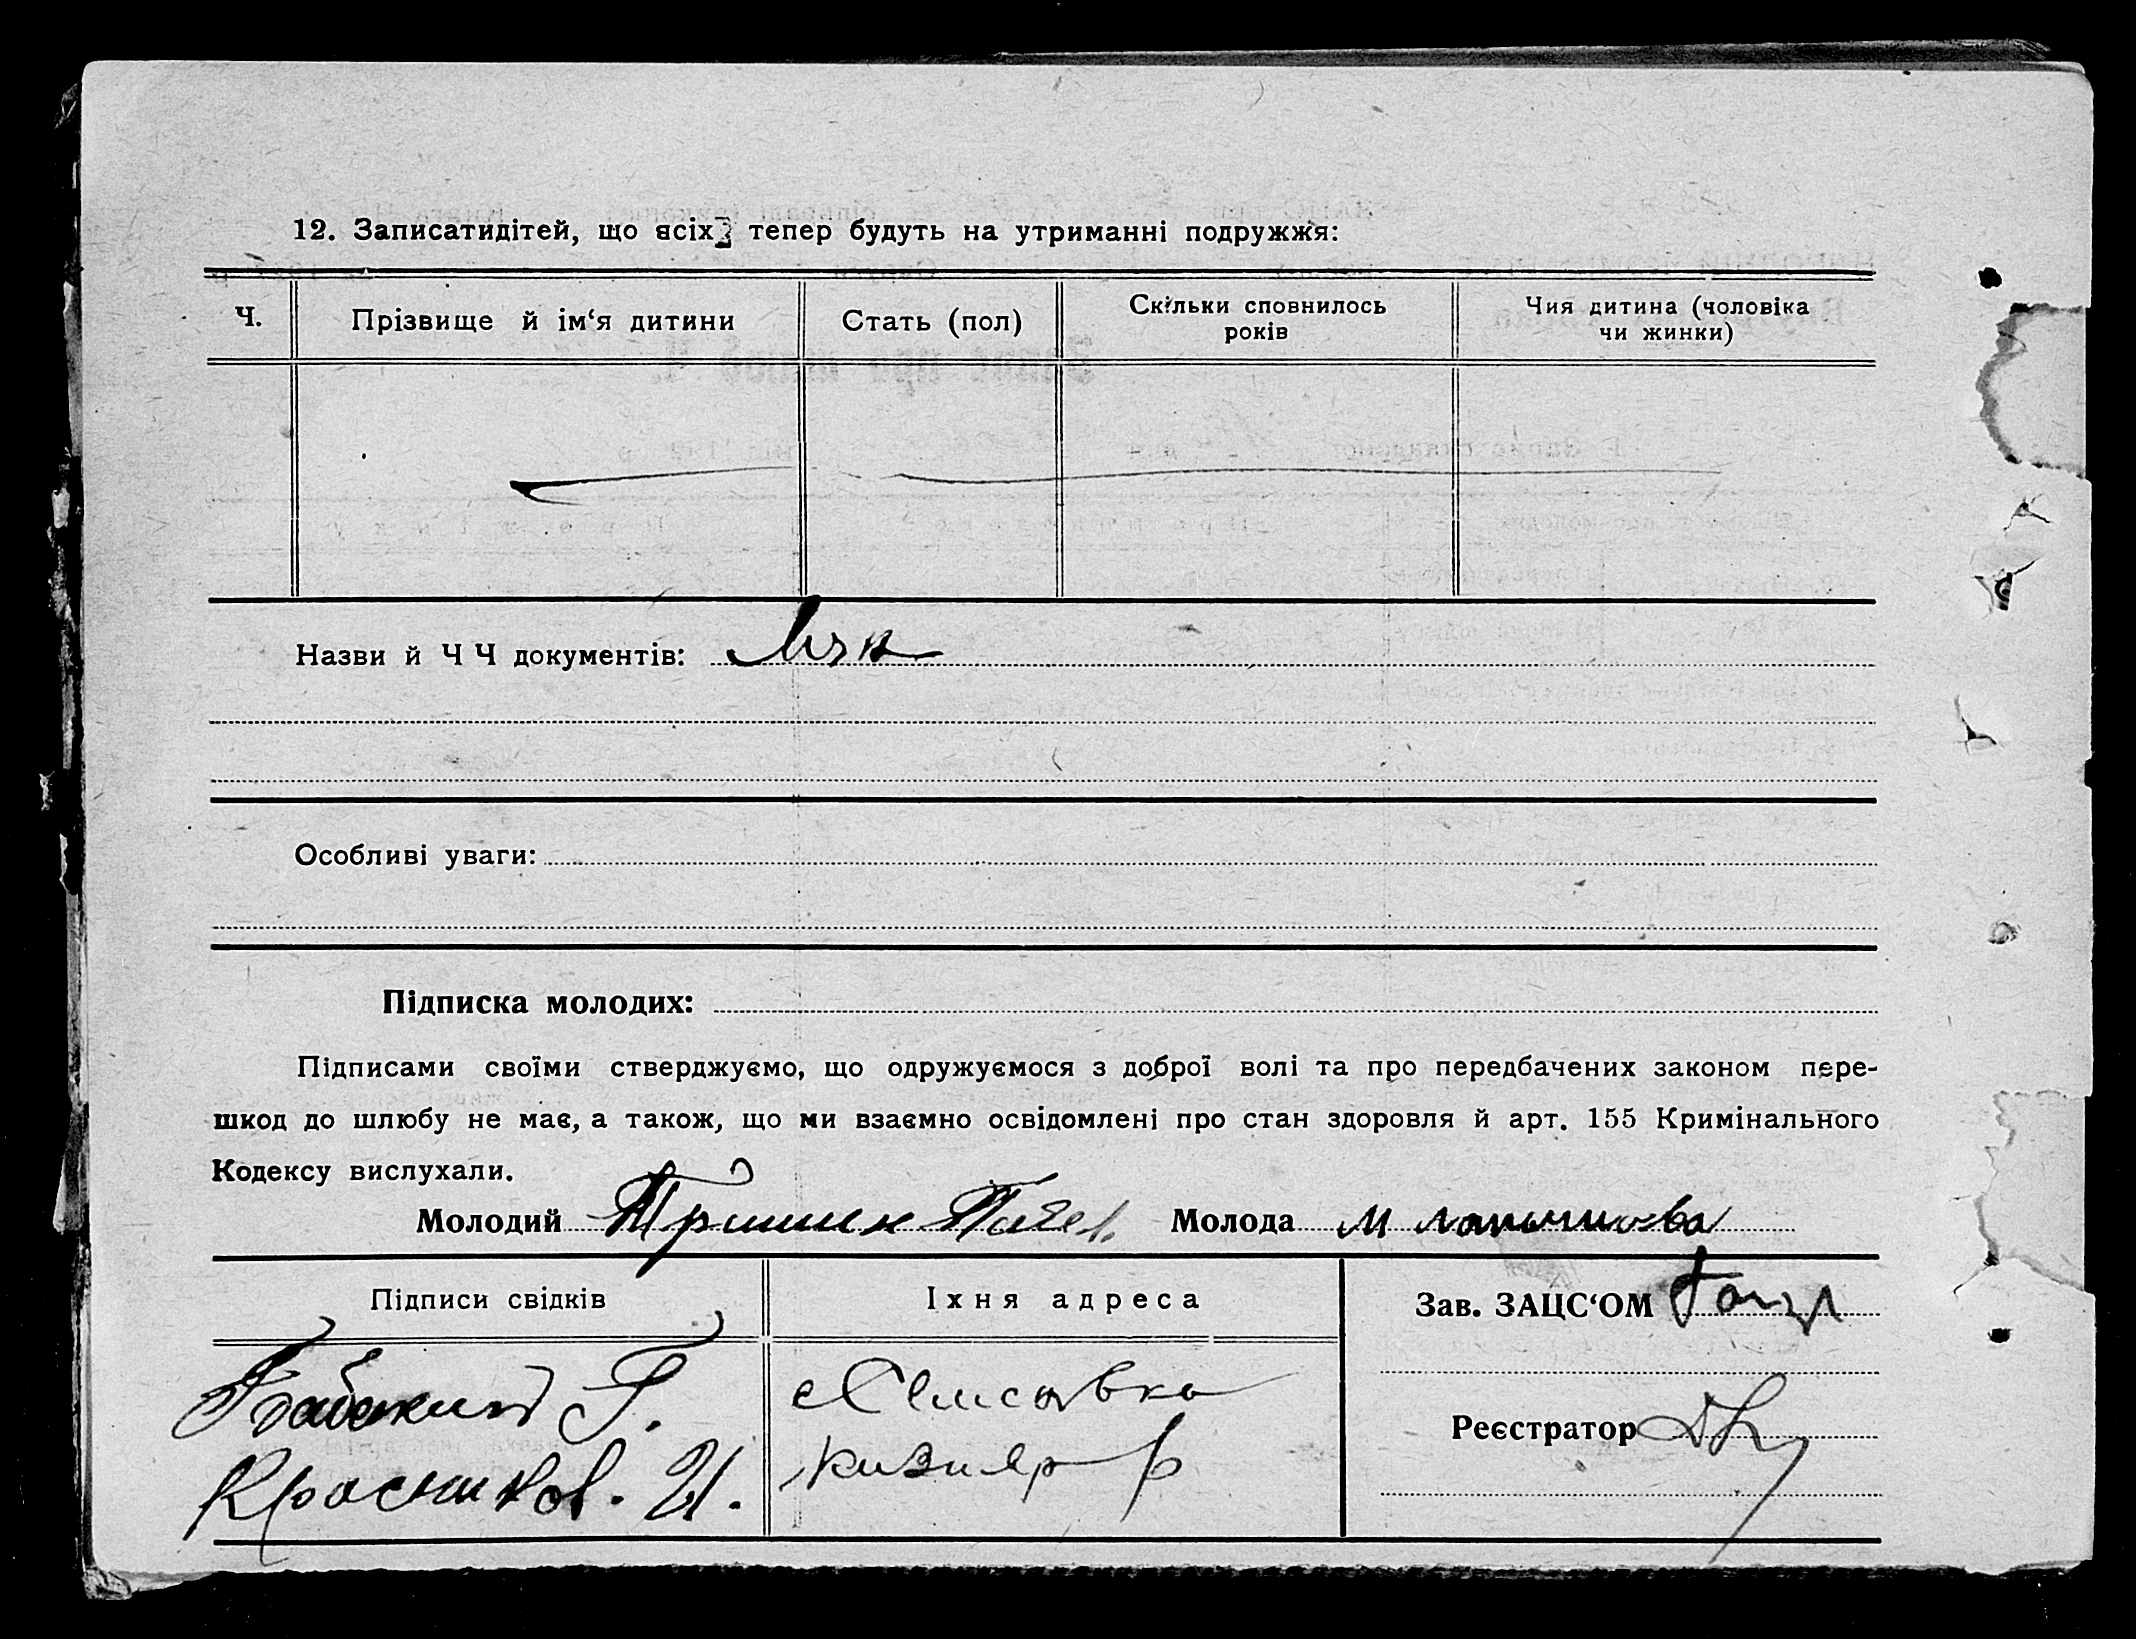 12. Записатидітей, що всіх тепер будуть на утриманні подружжя:
Ч.
Прізвище й ім‘я дитини
Стать (пол)
Скільки сповнилось
років
Чия дитина (чоловіка
чи жинки)
Назви й Ч Ч документів:
Особливі уваги:
Підписка молодих:
Підписами своїми стверджуємо, що одружуємося з доброї волі та про передбачених законом пере-
шкод до шлюбу не має, а також, що ми взаємно освідомлені про стан здоровля й арт. 155 Кримінального
Кодексу вислухали.
Молодий Молода М
Підписи свідків
Їхня адреса
Зав. ЗАЦС‘ОМ
Г.
Реєстратор
Красников. И.